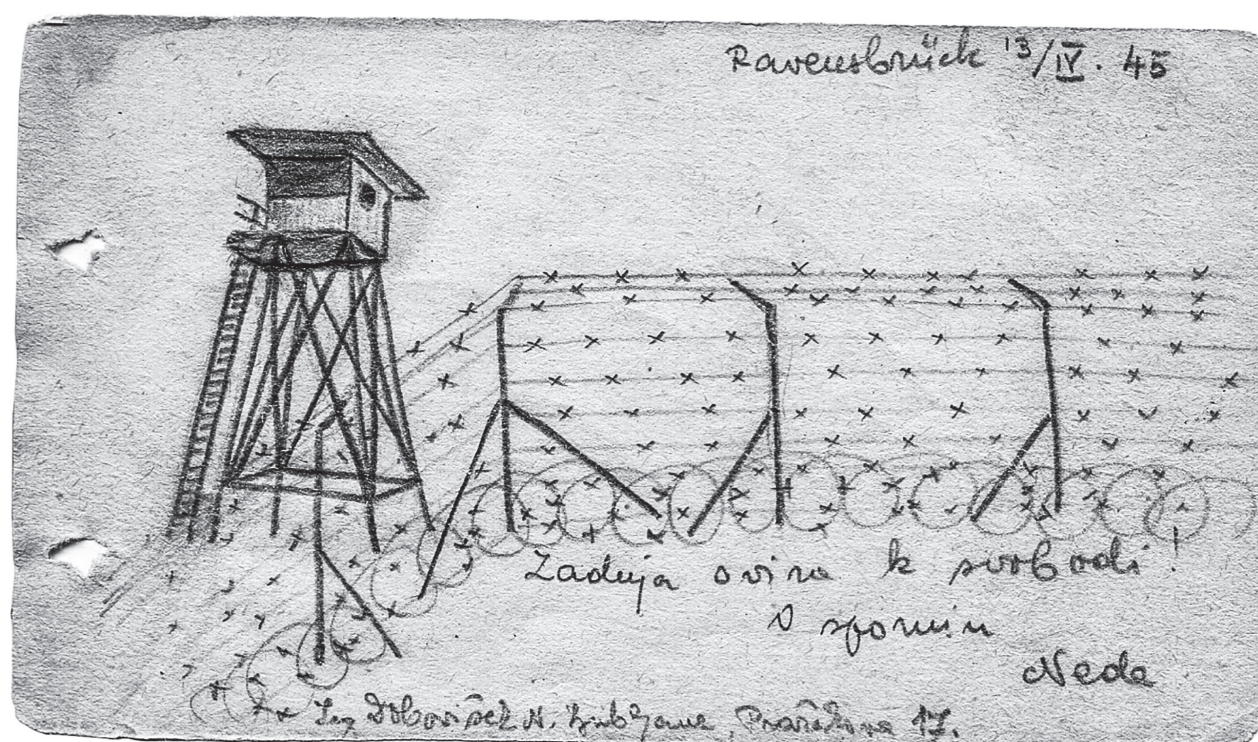 Ravensbrück 13/IV. 45
Zadnja ovira k svobodi!
V spomin
Neda
Ing Dobovišek N. Ljubljana, Pražakova 17.